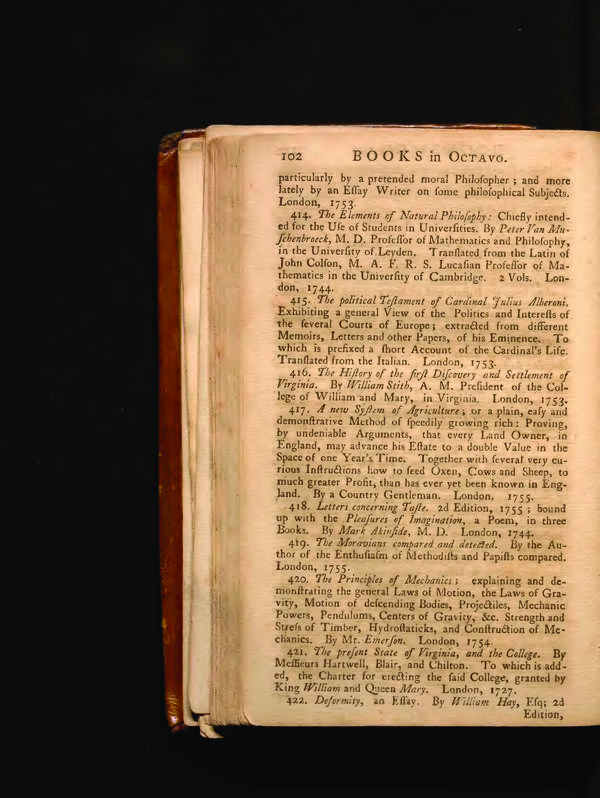 102 BOOKS in OCTAVO.
particularly by a pretended moral Philoſopher ; and more
lately by an Eſſay Writer on ſome philoſophical Subjects.
London, 1753.
414. The Elements of Natural Philoſophy: Chiefly intend-
ed for the Uſe of Students in Univerſities. By Peter Van Mu-
ſchenbroeck, M. D. Profeſſor of Mathematics and Philoſophy,
in the Univerſity of Leyden. Tranſlated from the Latin of
John Colſon, M. A. F. R. S. Lucaſian Profeſſor of Ma-
thematics in the Univerſity of Cambridge. 2 Vols. Lon-
don, 1744.
415. The political Teſtament of Cardinal Julius Alberoni.
Exhibiting a general View of the Politics and Intereſts of
the ſeveral Courts of Europe ; extracted from different
Memoirs, Letters and other Papers, of his Eminence. To
which is prefixed a ſhort Account of the Cardinal's Life.
Tranſlated from the Italian. London, 1753.
416. The Hiſtory of the firſt Diſcovery and Settlement of
Virginia. By William Stith, A. M. Preſident of the Col-
lege of William and Mary, in Virginia. London, 1753.
417. A new Syſtem of Agriculture ; or a plain, eaſy and
demonſtrative Method of ſpeedily growing rich : Proving,
by undeniable Arguments, that every Land Owner, in
England, may advance his Eſtate to a double Value in the
Space of one Year's Time. Together with ſeveral very cu-
rious Inſtructions how to feed Oxen, Cows and Sheep, to
much greater Profit, than has ever yet been known in Eng-
land. By a Country Gentleman. London, 1755.
418. Letters concerning Taſte. 2d Edition, 1755 ; bound
up with the Pleaſures of Imagination, a Poem, in three
Books. By Mark Akinſide, M. D. London, 1744.
419. The Moravians compared and detected. By the Au-
thor of the Enthuſiaſm of Methodiſts and Papiſts compared.
London, 1755.
420. The Principles of Mechanics ; explaining and de-
monſtrating the general Laws of Motion, the Laws of Gra-
vity, Motion of deſcending Bodies, Projectiles, Mechanic
Powers, Pendulums, Centers of Gravity, &c. Strength and
Streſs of Timber, Hydroſtaticks, and Conſtruction of Me-
chanics. By Mr. Emerſon. London, 1754.
421. The preſent State of Virginia, and the College. By
Meſſieurs Hartwell, Blair, and Chilton. To which is add-
ed, the Charter for erecting the ſaid College, granted by
King William and Queen Mary. London, 1727.
422. Deformity, an Eſſay. By William Hay, Eſq; 2d
Edition,